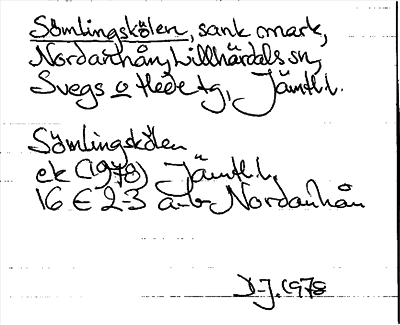 Sömlingskölen, sank mark,
Nordanhån, Lillhärdals sn,
Svegs o Hede tg, Jämtl.l.
Sömlingskölen
ek (1978) Jämtl.l.
16 E 2-3 a-b Nordanhån
D-J. 1978